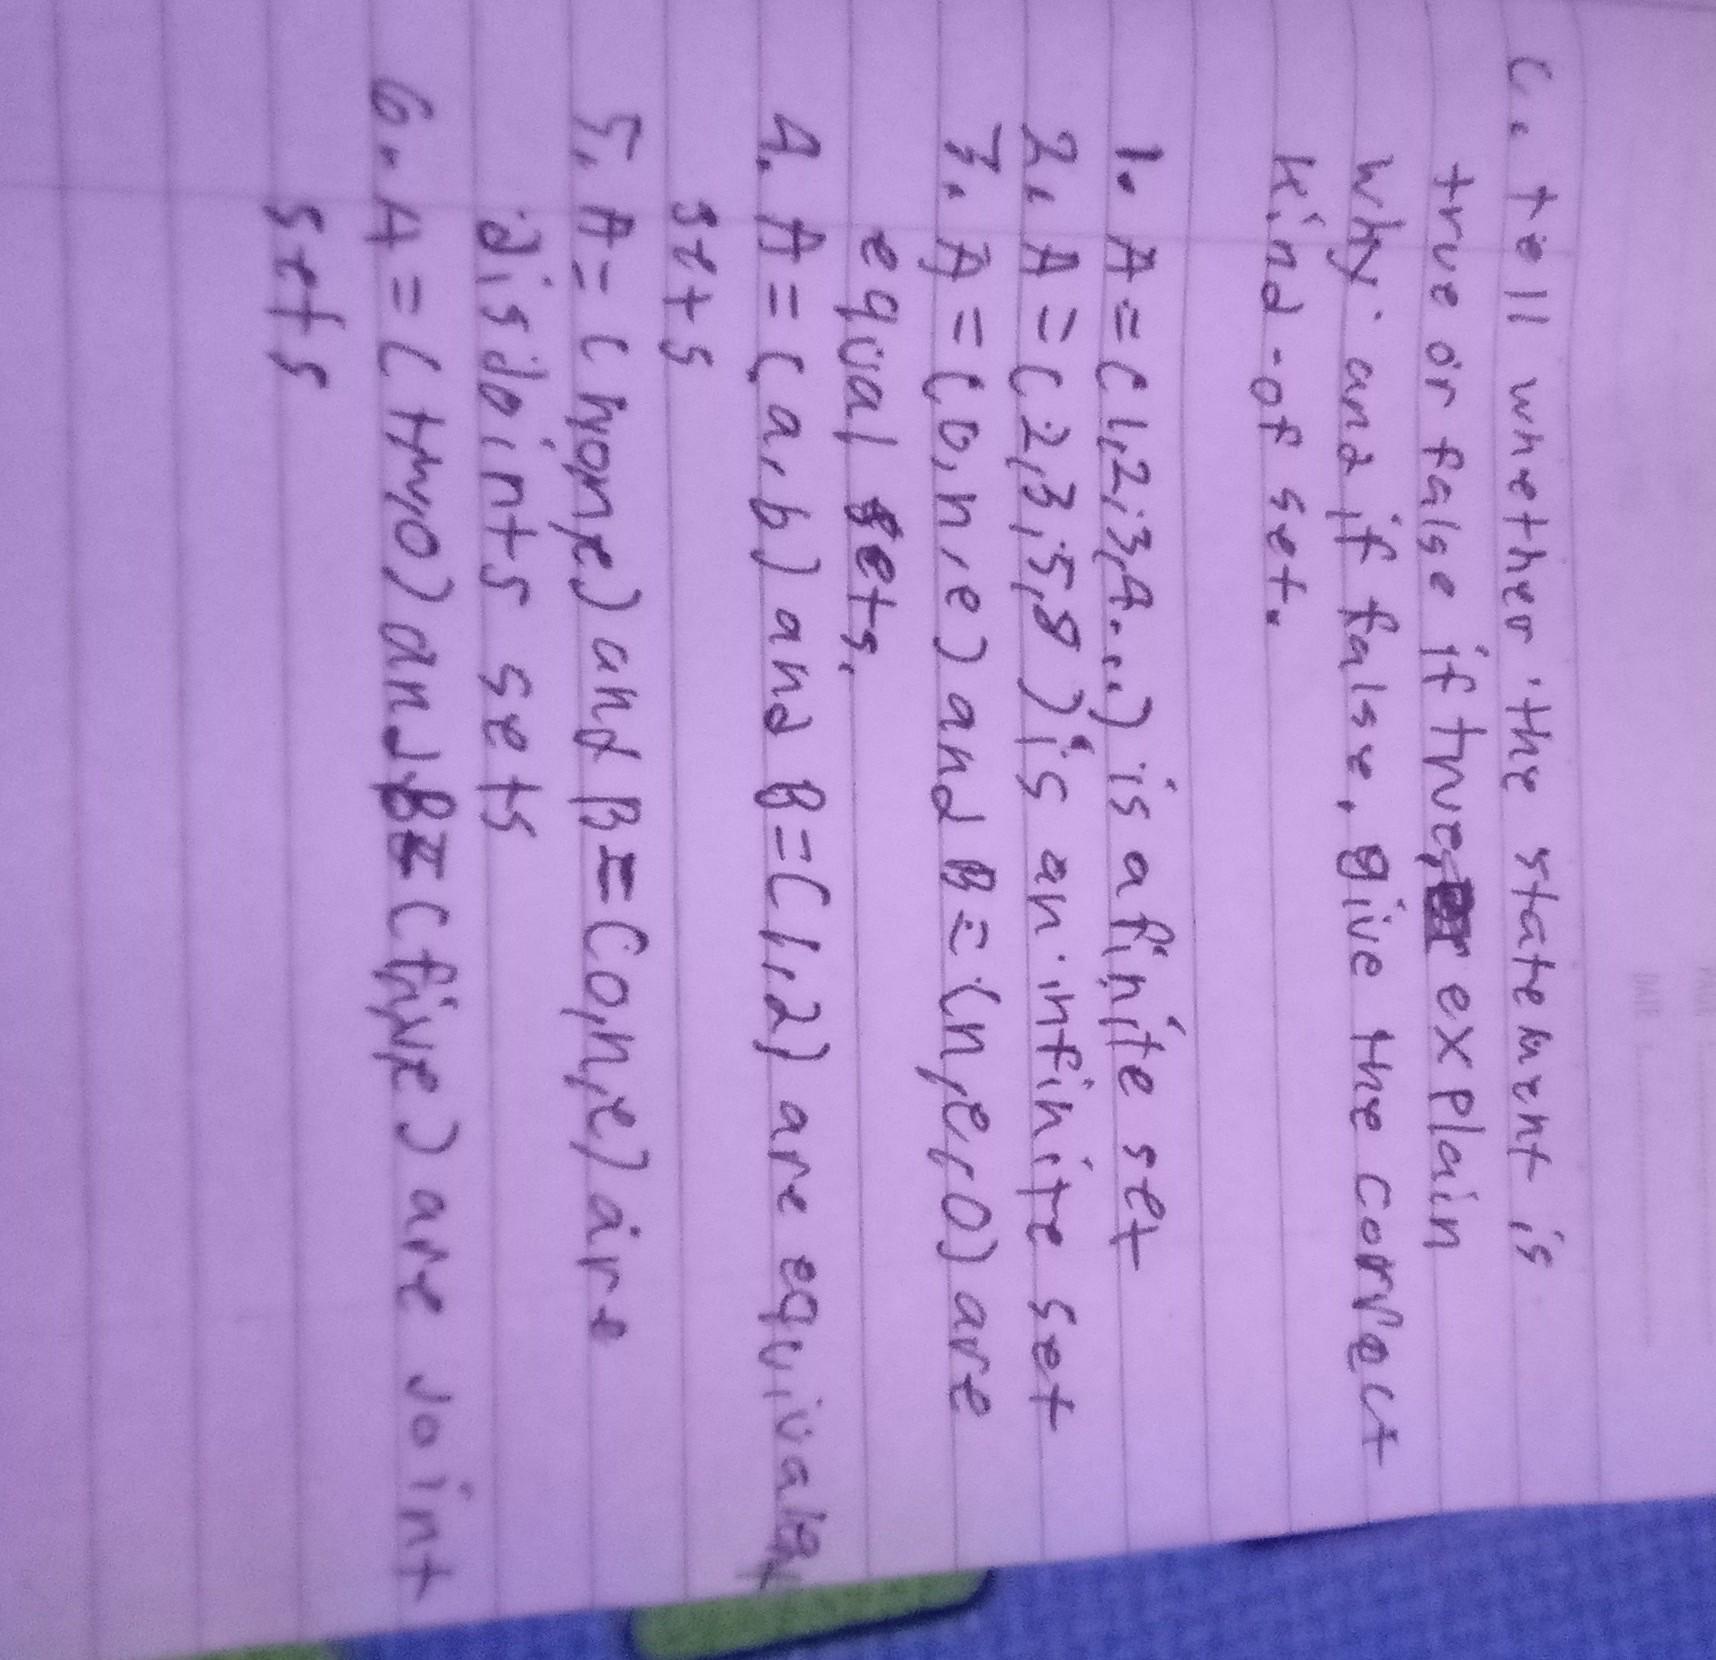 C. tell whether the statement is
true or false if true, explain
why and if false, give the correct
kind-of set.
1. A=(1,2,3,4...) is a finite set
2. A=(2,3,5,8) is an infinite set
3. A=(o,n,e) and B=(n,e,o) are
equal sets.
4. A=(a,b) and B=(1,2) are equivalent
sets
5. A=( and B=(o,n,e) are
disdoints sets
6. A=(and B=(are Joint
sets
DATE